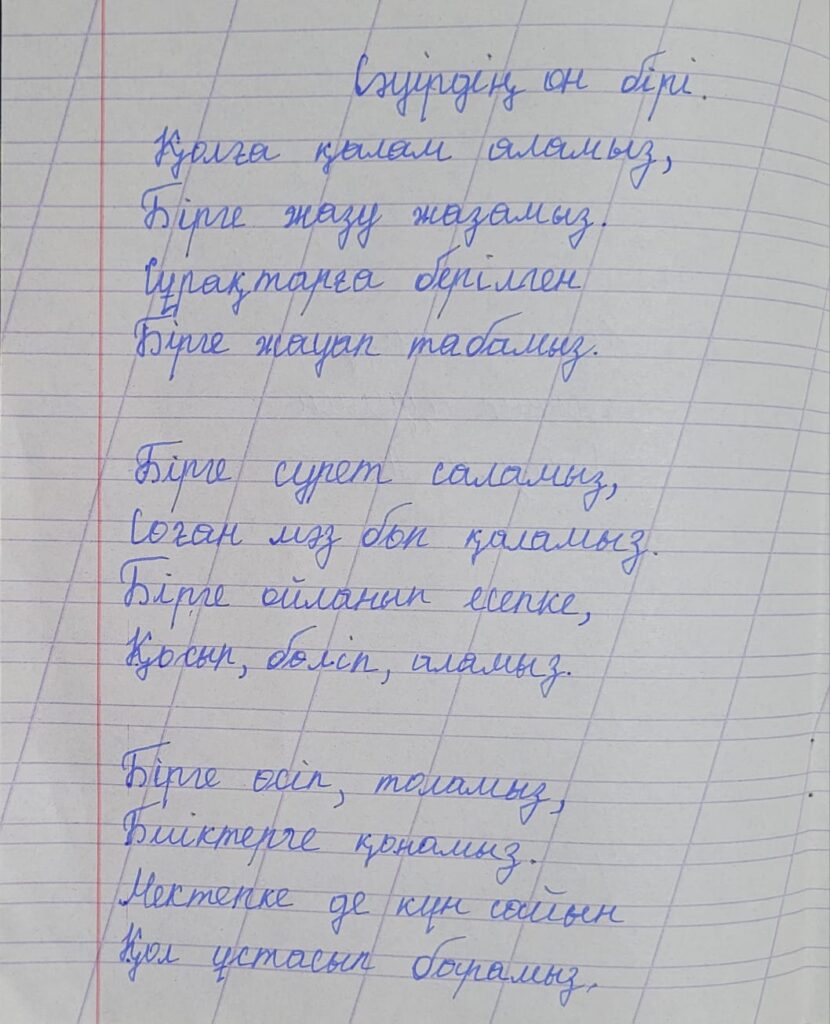 Сәуірдің он бірі.
Қолға қалам аламыз,
Бірге жазу жазамыз.
Сұрақтарға берілген
Бірге жауап табамыз.
Бірге сурет саламыз,
Соған мәз боп қаламыз.
Бірге ойланып есепке,
Қосып, бөліп, аламыз.
Бірге өсіп, толамыз,
Биіктерге қонамыз.
Мектепке де күн сайын
Қол ұстасып барамыз.